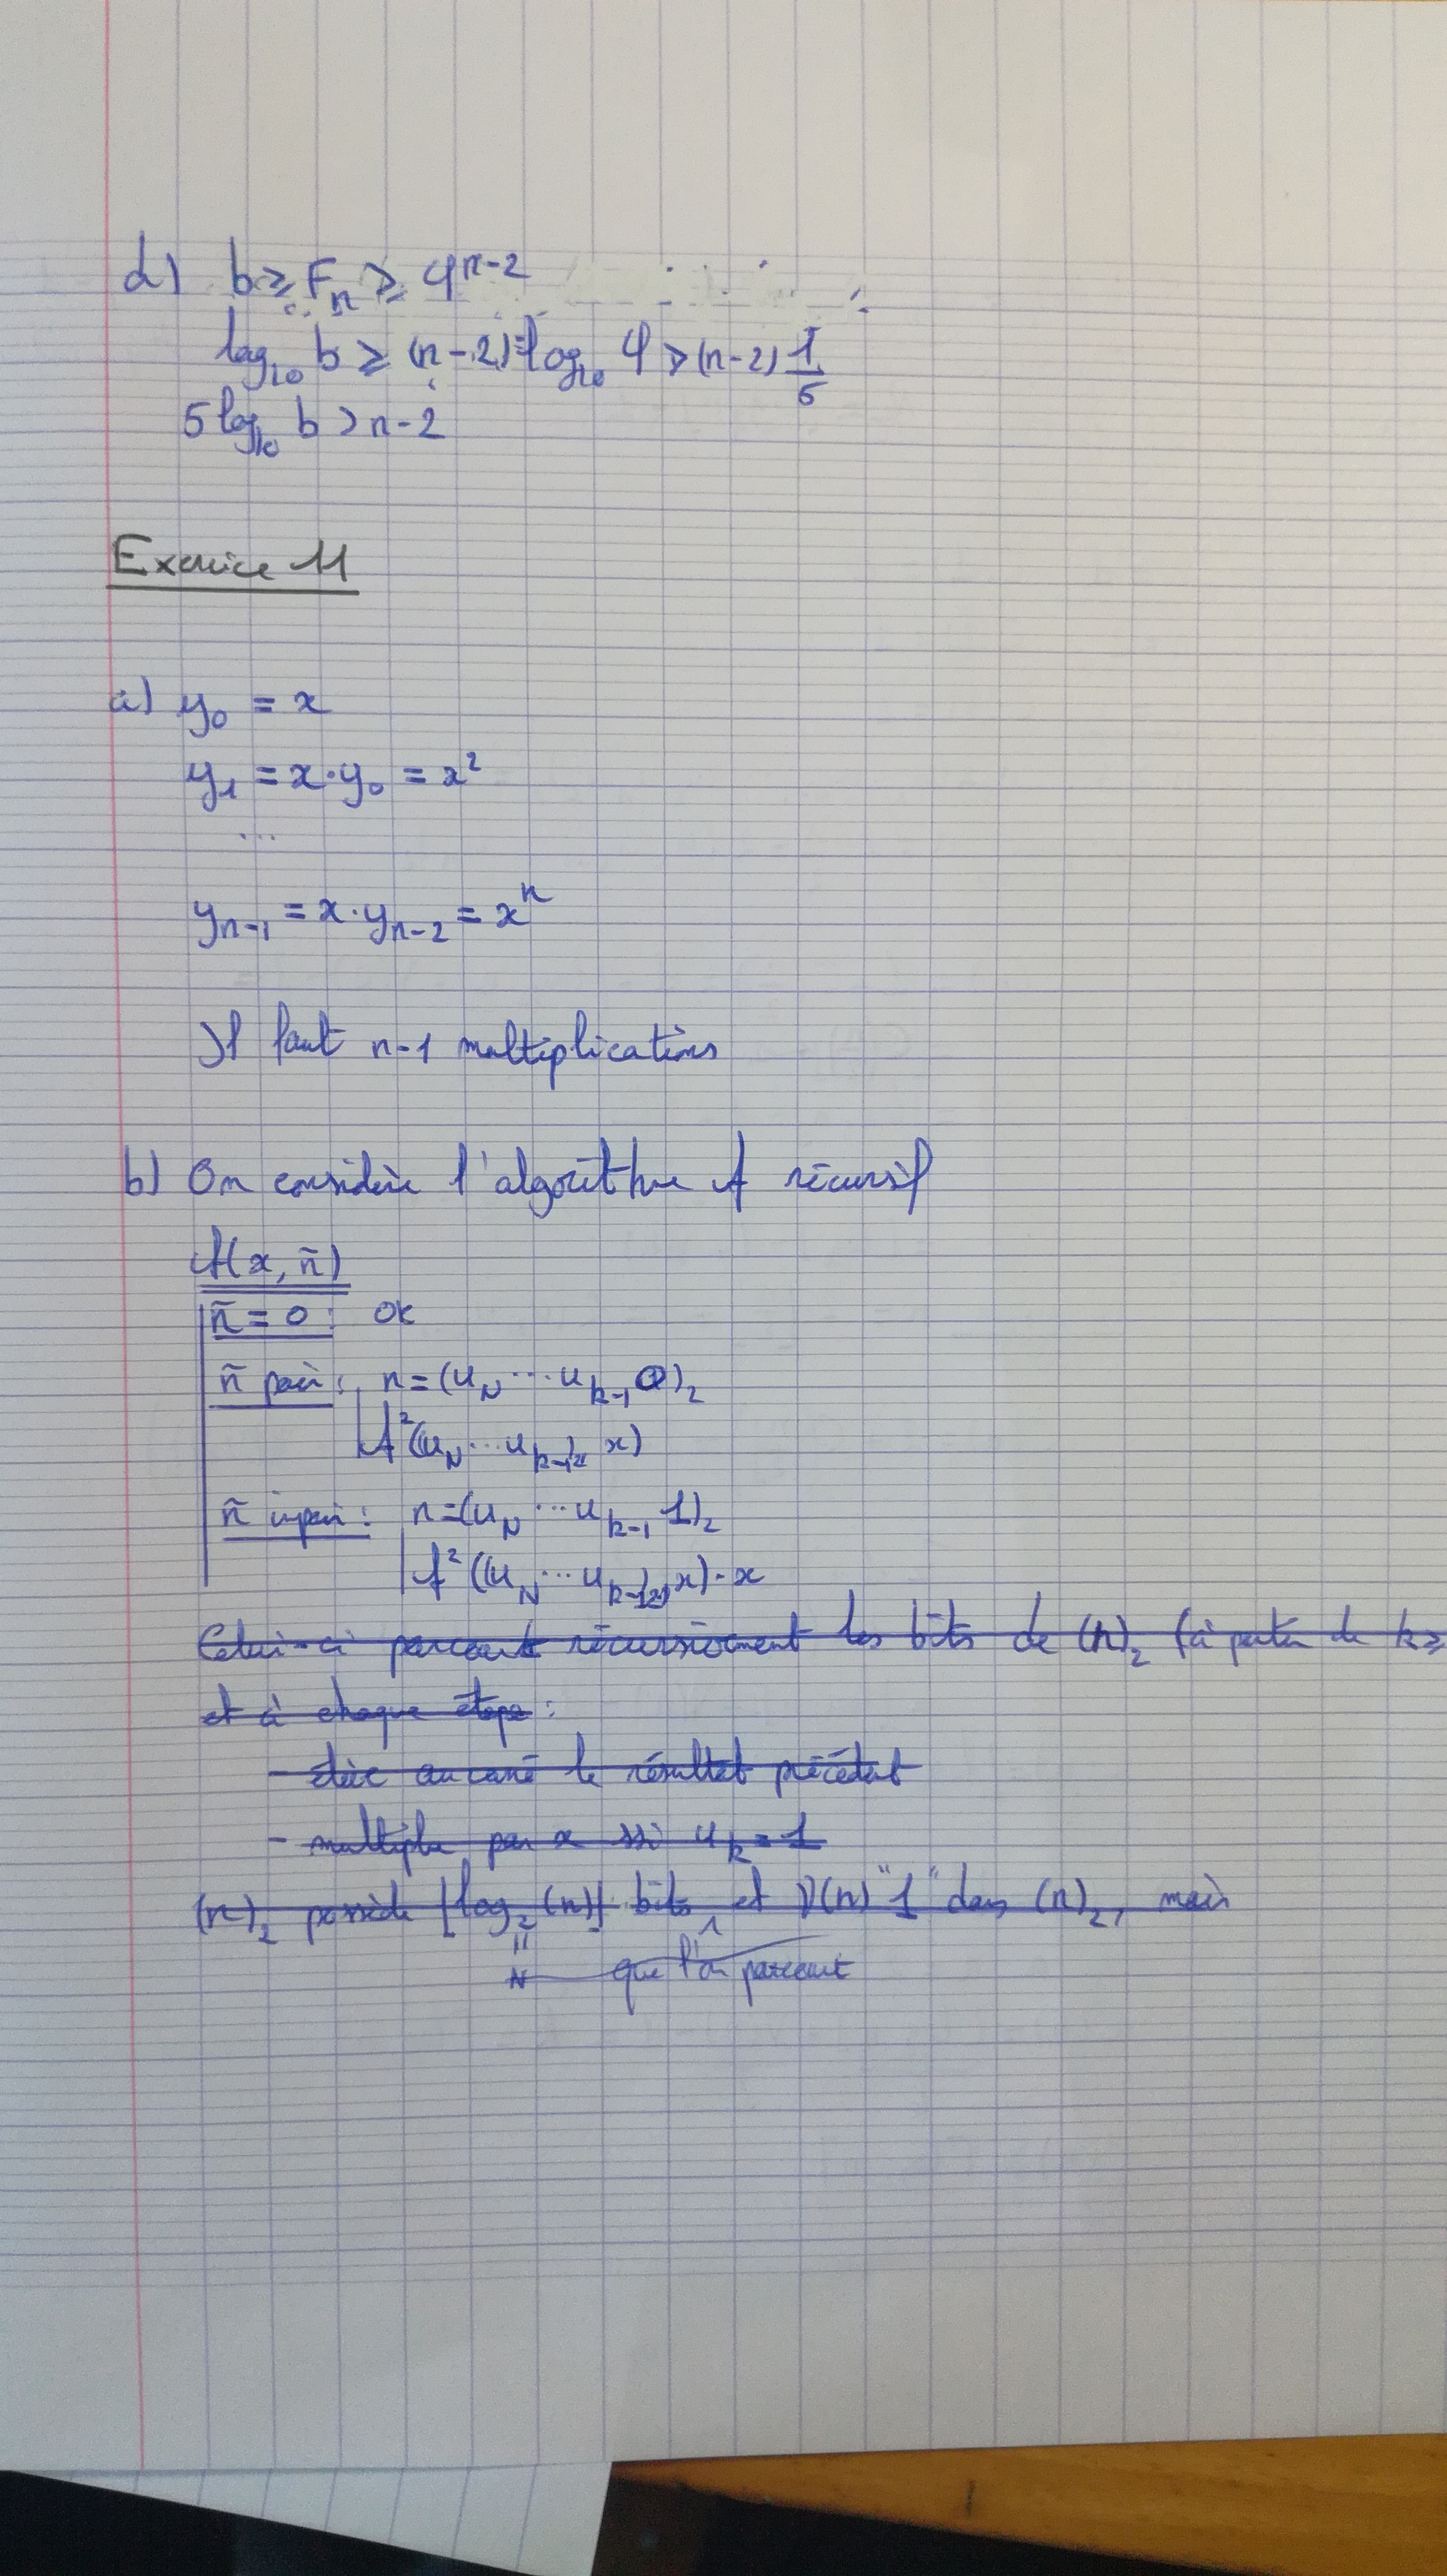 d) b ≥ Fn ≥ φ^{n-2}
log₁₀ b ≥ (n-2) log₁₀ φ > (n-2) 1/5
5 log₁₀ b > n-2
Exercice 11
a) y₀ = x
y₁ = x·y₀ = x²
...
y_{n-1} = x·y_{n-2} = xⁿ
Il faut n-1 multiplications
b) On considère l'algorithme A récursif
A(x, ñ)
ñ = 0 : OK
ñ pair : n = (u_N ... u_{k-1} 0)₂
A²((u_N ... u_{k-1})₂, x)
ñ impair : n = (u_N ... u_{k-1} 1)₂
A²((u_N ... u_{k-1})₂, x)·x
Celui-ci parcourt récursivement les bits de (n)₂ (à partir de k≥
et à chaque étape :
- élève au carré le résultat précédent
- multiplie par x ssi u_k = 1
(n)₂ possède ⌊log₂(n)⌋ bits et ν(n) "1" dans (n)₂, mais
= N que l'on parcourt